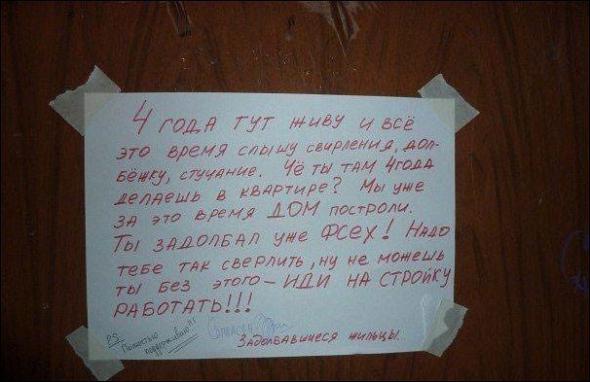 4 ГОДА ТУТ ЖИВУ И ВСЁ
ЭТО ВРЕМЯ СЛЫШУ СВИРЛЕНИЯ, ДОЛ-
БЁЖКУ, СТУЧАНИЕ. ЧЁ ТЫ ТАМ 4 ГОДА
ДЕЛАЕШЬ В КВАРТИРЕ? МЫ УЖЕ
ЗА ЭТО ВРЕМЯ ДОМ ПОСТРОЛИ.
ТЫ ЗАДОЛБАЛ УЖЕ ФСЕХ! НАДО
ТЕБЕ ТАК СВЕРЛИТЬ, НУ НЕ МОЖЕШЬ
ТЫ БЕЗ ЭТОГО – ИДИ НА СТРОЙКУ
РАБОТАТЬ!!!
PS Полностью
поддерживаю!!!
ЗАДОЛБАВШИЕСЯ ЖИЛЬЦЫ.